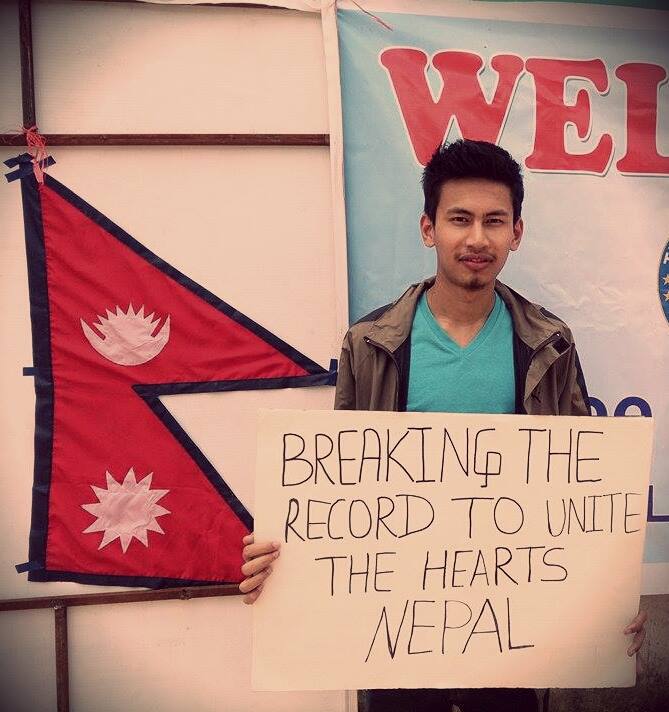 WEL
BREAKING THE
RECORD TO UNITE
THE HEARTS
NEPAL